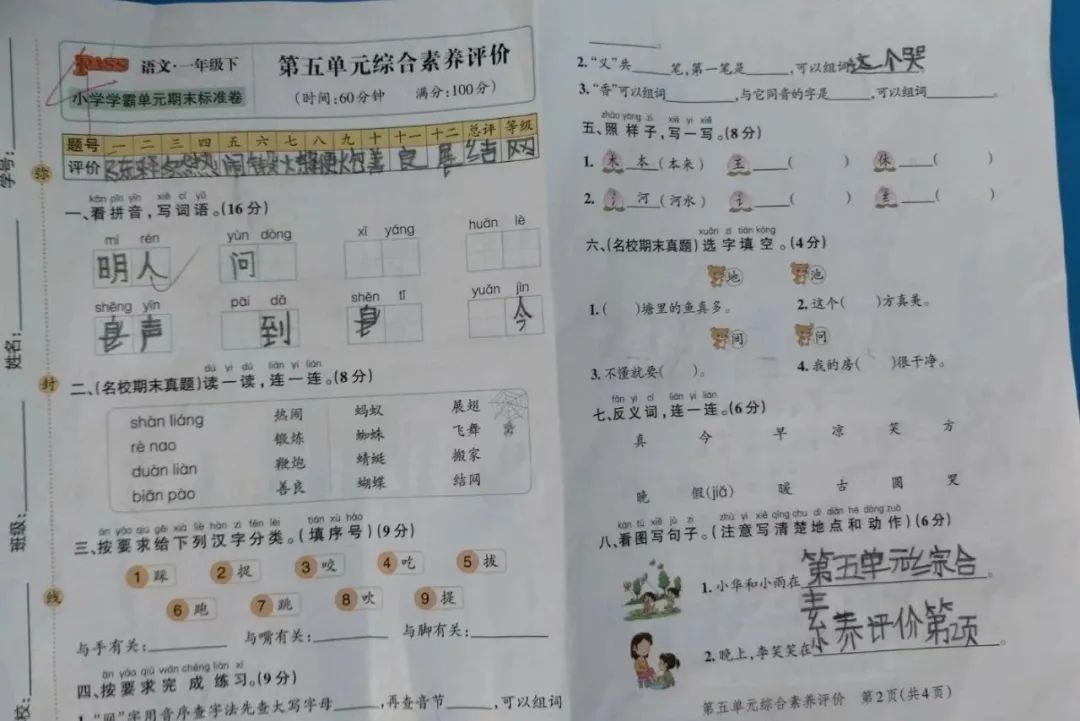 PASS 语文·一年级下 第五单元综合素养评价
小学学霸单元期末标准卷 (时间:60分钟 满分:100分)
题号 一 二 三 四 五 六 七 八 九 十 十一 十二 总评 等级
评价 闹 火 炮善良 展结网
学号:
弥
姓名:
封
班级:
线
校:
kàn pīn yīn xiě cí yǔ
一、看拼音,写词语。(16分)
mí rén yùn dòng xī yáng huān lè
明人 问
shēng yīn pāi dǎ shēn tǐ yuán jìn
声 到 身 今
dú yi dú lián yi lián
二、(名校期末真题)读一读,连一连。(8分)
shàn liáng 热闹 蚂蚁 展翅
rè nao 锻炼 蜘蛛 飞舞
duàn liàn 鞭炮 蜻蜓 搬家
biān pào 善良 蝴蝶 结网
àn yāo qiú gěi xià liè hàn zì fēn lèi tián xù hào
三、按要求给下列汉字分类。(填序号)(9分)
1 踩 2 捉 3 咬 4 吃 5 拔
6 跑 7 跳 8 吹 9 提
与手有关: 与嘴有关: 与脚有关:
àn yāo qiú wán chéng liàn xí
四、按要求完成练习。(9分)
1.“网”字用音序查字法先查大写字母 ,再查音节 ,可以组词
。
2.“义”共 笔,第一笔是 ,可以组词这个哭
3.“香”可以组词 ,与它同音的字是 ,可以组词 。
zhào yàng zi xiě yi xiě
五、照样子,写一写。(8分)
1. 木 本 (本来) 王 ( ) 休 ( )
2. 氵 河 (河水) 讠 ( ) ( )
xuǎn zì tián kòng
六、(名校期末真题)选字填空。(4分)
地 池
1.( )塘里的鱼真多。 2.这个( )方真美。
间 问
3.不懂就要( )。 4.我的房( )很干净。
fǎn yì cí lián yi lián
七、反义词,连一连。(6分)
真 今 早 凉 笑 方
晚 假(jiǎ) 暖 古 圆 哭
kàn tú xiě jù zi zhù yì xiě qīng chu dì diǎn hé dòng zuò
八、看图写句子。(注意写清楚地点和动作)(6分)
1.小华和小雨在第五单元综合。
素养评价第2项
2.晚上,李笑笑在 。
第五单元综合素养评价 第2页(共4页)